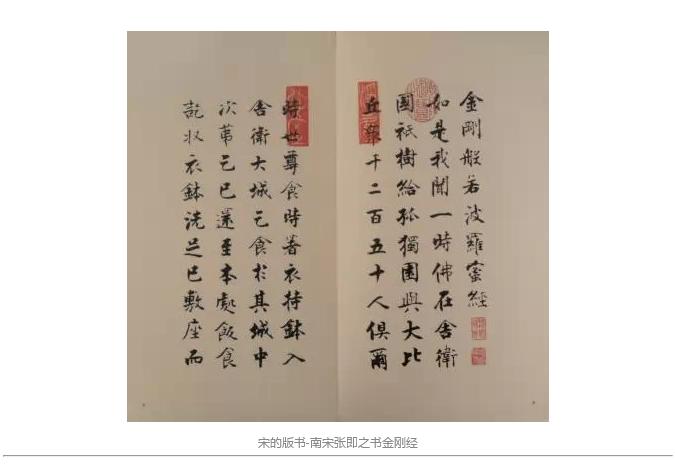 金剛般若波羅蜜經
如是我聞一時佛在舍衛
國祇樹給孤獨園與大比
丘衆千二百五十人俱爾
時世尊食時著衣持鉢入
舍衛大城乞食於其城中
次第乞已還至本處飯食
訖收衣鉢洗足已敷座而
宋的版书-南宋张即之书金刚经